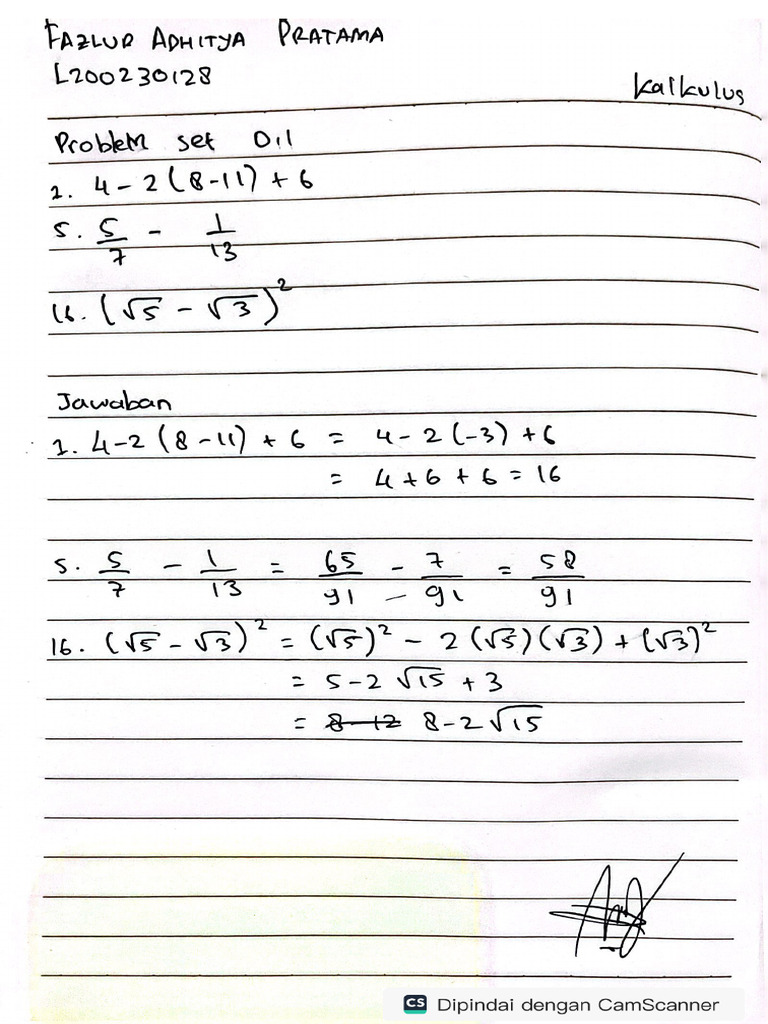 FAZLUR ADHITYA PRATAMA
L200230128
Kalkulus
Problem set 0,1
1. 4 - 2 (8-11) + 6
5. 5/7 - 1/13
16. (√5 - √3)²
Jawaban
1. 4-2 (8-11) + 6 = 4-2 (-3) + 6
= 4 + 6 + 6 = 16
5. 5/7 - 1/13 = 65/91 - 7/91 = 58/91
16. (√5 - √3)² = (√5)² - 2 (√5)(√3) + (√3)²
= 5-2 √15 + 3
= 8-12 8-2√15
CS Dipindai dengan CamScanner